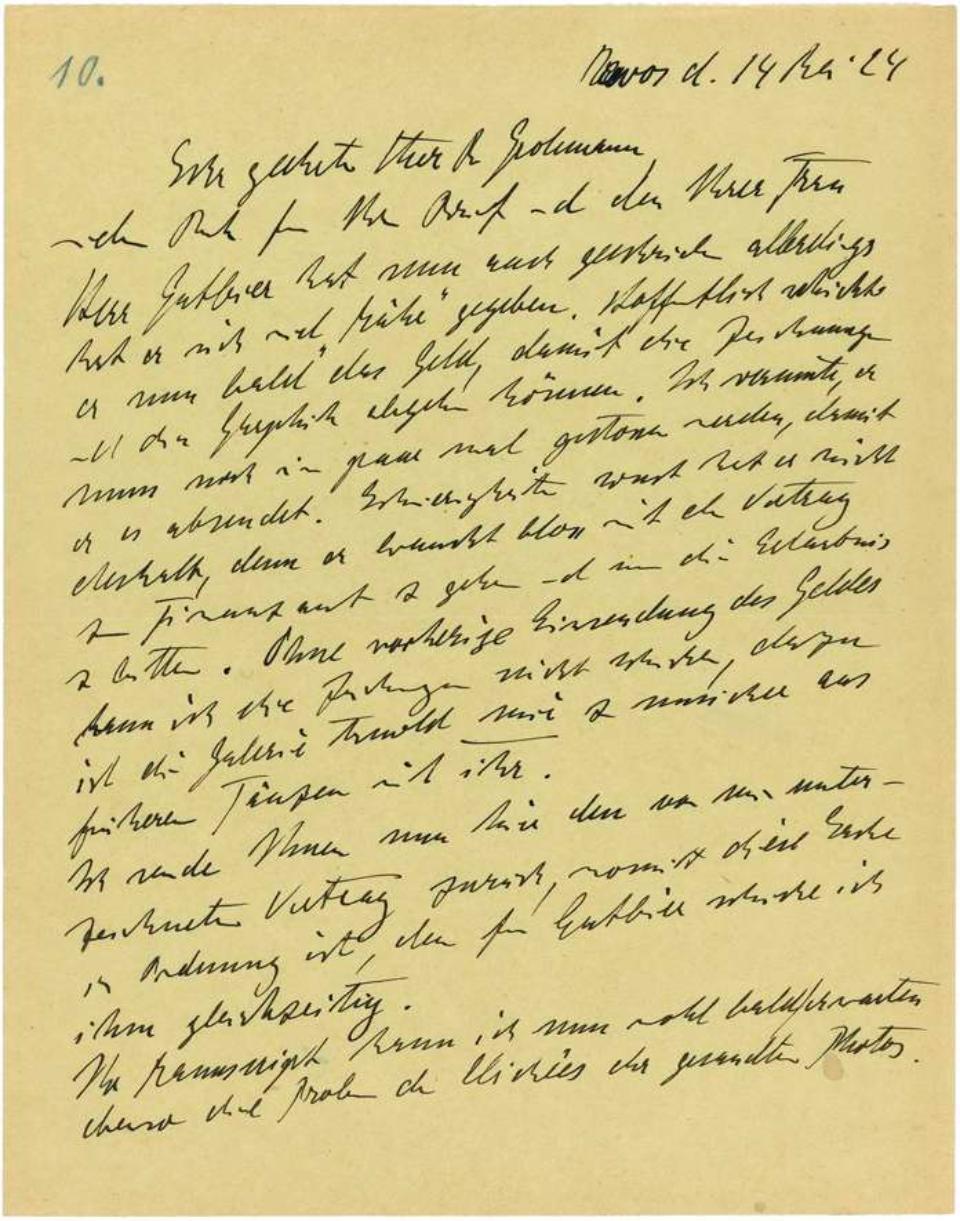 10.
Davos d. 14 Mai 24
Sehr geehrter Herr Dr Grohmann,
vielen Dank für Ihren Brief und den Ihrer Frau
Herr Gutbier hat nun auch geschrieben allerdings
hat er sich viel „Mühe" gegeben. Hoffentlich schickte
er nun bald das Geld, damit die Zeichnungen
und die Graphik abgehen können. Ich vermute, er
muss noch ein paar mal gestossen werden, damit
er es absendet. Schwierigkeiten sonst hat er nicht
deshalb, denn er braucht bloss mit dem Vertrag
zum Finanzamt zu gehen und um die Erlaubnis
zu bitten. Ohne vorherige Einsendung des Geldes
kann ich die Zeichnungen nicht schicken, dazu
ist die Galerie Arnold mir zu unsicher aus
früheren Täuschen mit ihr.
Ich sende Ihnen nun hier den von mir unter-
zeichneten Vertrag zurück, womit diese Sache
in Ordnung ist, den für Gutbier schicke ich
ihm gleichzeitig.
Ihr Manuscript kann ich nun wohl bald erwarten
ebenso die Proben der Clichées der gesandten Photos.